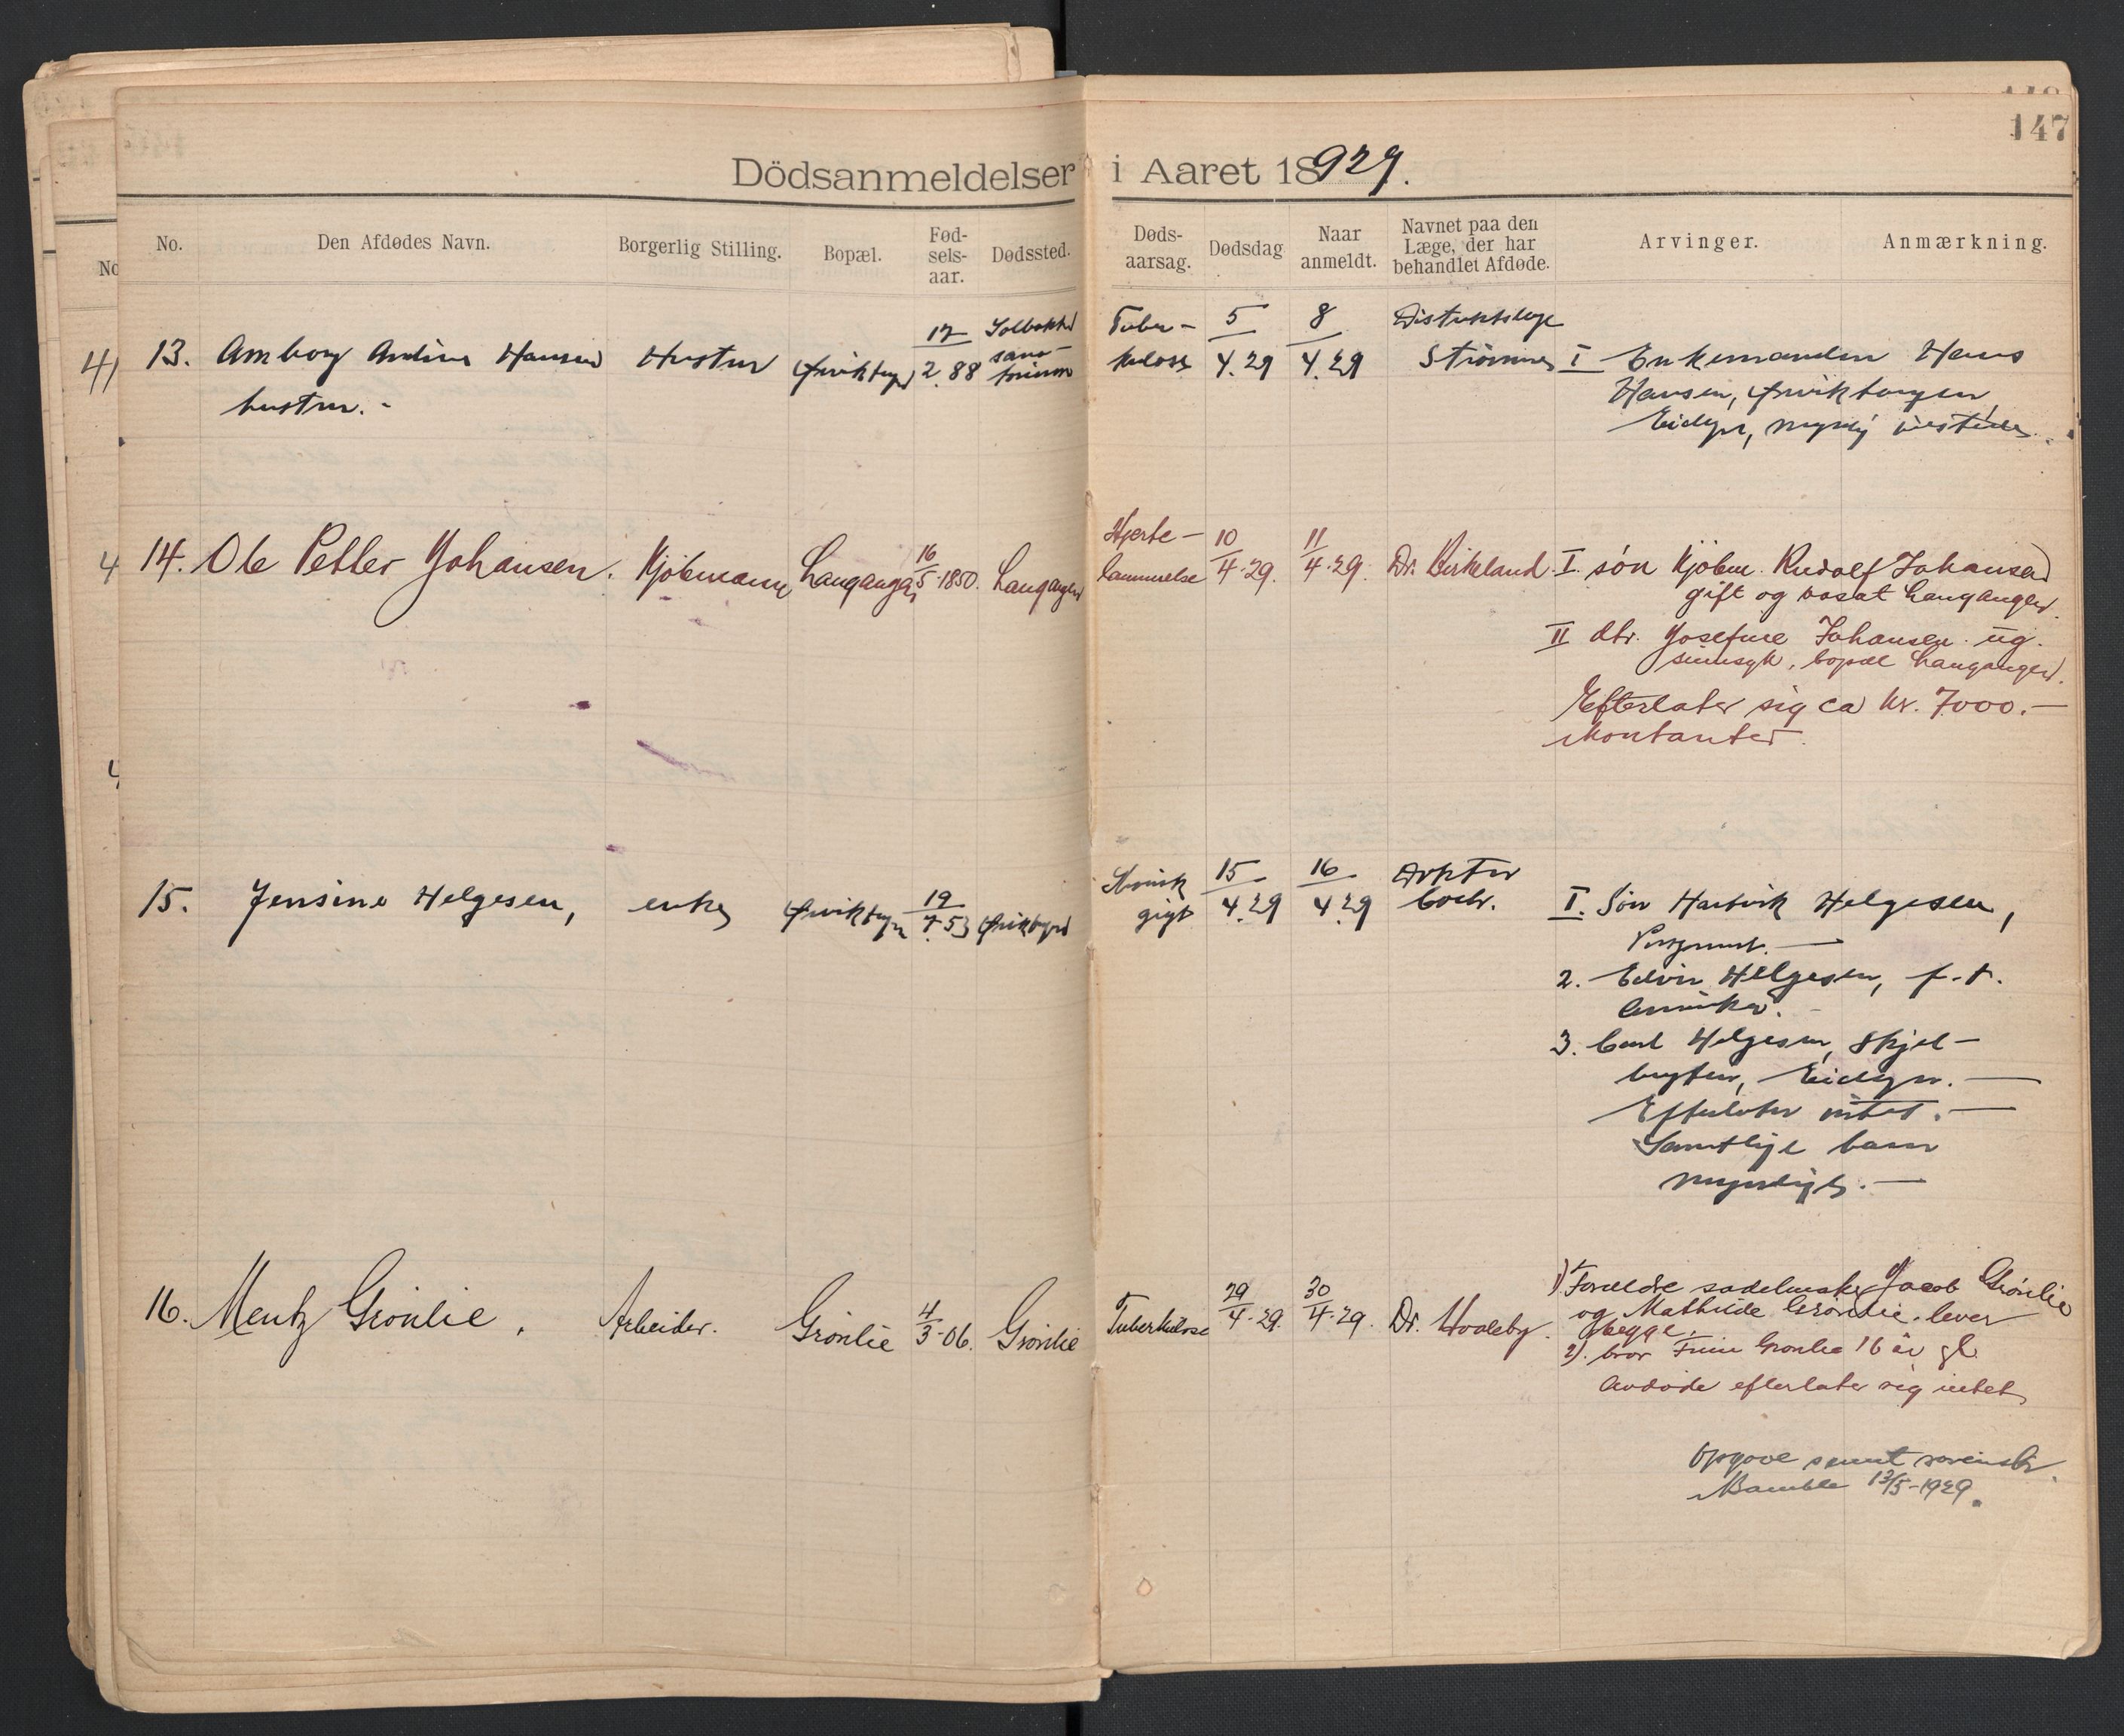 147
Dödsanmeldelser i Aaret 18929.
No.
Den Afdødes Navn.
Borgerlig Stilling.
Bopæl.
Fød-
sels-
aar.
Dødssted.
Døds-
aarsag.
Dødsdag
Naar
anmeldt.
Navnet paa den
Læge, der har
behandlet Afdøde.
Arvinger.
Anmærkning.
13. Amborg Andine Hansen
hustru.-
Hustru
Ørvikbygd
17/2.88
sana-
torium
Tuber-
kulose
5/4.29
8/4.29
Distriktslæge
Strømme
I Enkemanden Hans
Hansen, Ørvikbygen,
Eidgr, myndig
14. Ole Petter Johansen.
Kjøbmann
Langangen
16/5.1850.
Langangen
Hjerte-
lammelse
10/4.29.
11/4.29.
Dr. Birkeland
I. søn Kjøbm. Rudolf Johansen
gift og bosat Langangen
II dtr. Josefine Johansen. ug.
sinnsyk, bopæl Langangen.
Efterlater sig ca kr. 7000.-
Kontanter.
15. Jensine Helgesen,
enke
Ørvikbygn
19/7.53
Ørvikbygd
Kronisk
gigt
15/4.29
16/4.29
Doktor
I. Søn Hartvik Helgesen,
Porsgrund.-
2. Edvin Helgesen, f.t.
Amerika.-
3. Carl Helgesen, Skjel-
bugten, Eidgr.-
Efterlater intet.-
Samtlige barn
myndige.-
16. Mentz Grönlie.
Arbeider.
Grönlie
4/3-06.
Grönlie
Tuberkulose
29/4.29.
30/4.29.
Dr. Hvaleby.
1) Foreldre sadelmaker Jacob Grönlie
og Mathilde Grönlie. lever
begge.
2). bror Finn Grönlie 16 år gl.
Avdøde efterlater sig intet
Opgave sennt sorenskr.
Bamble 13/5-1929.